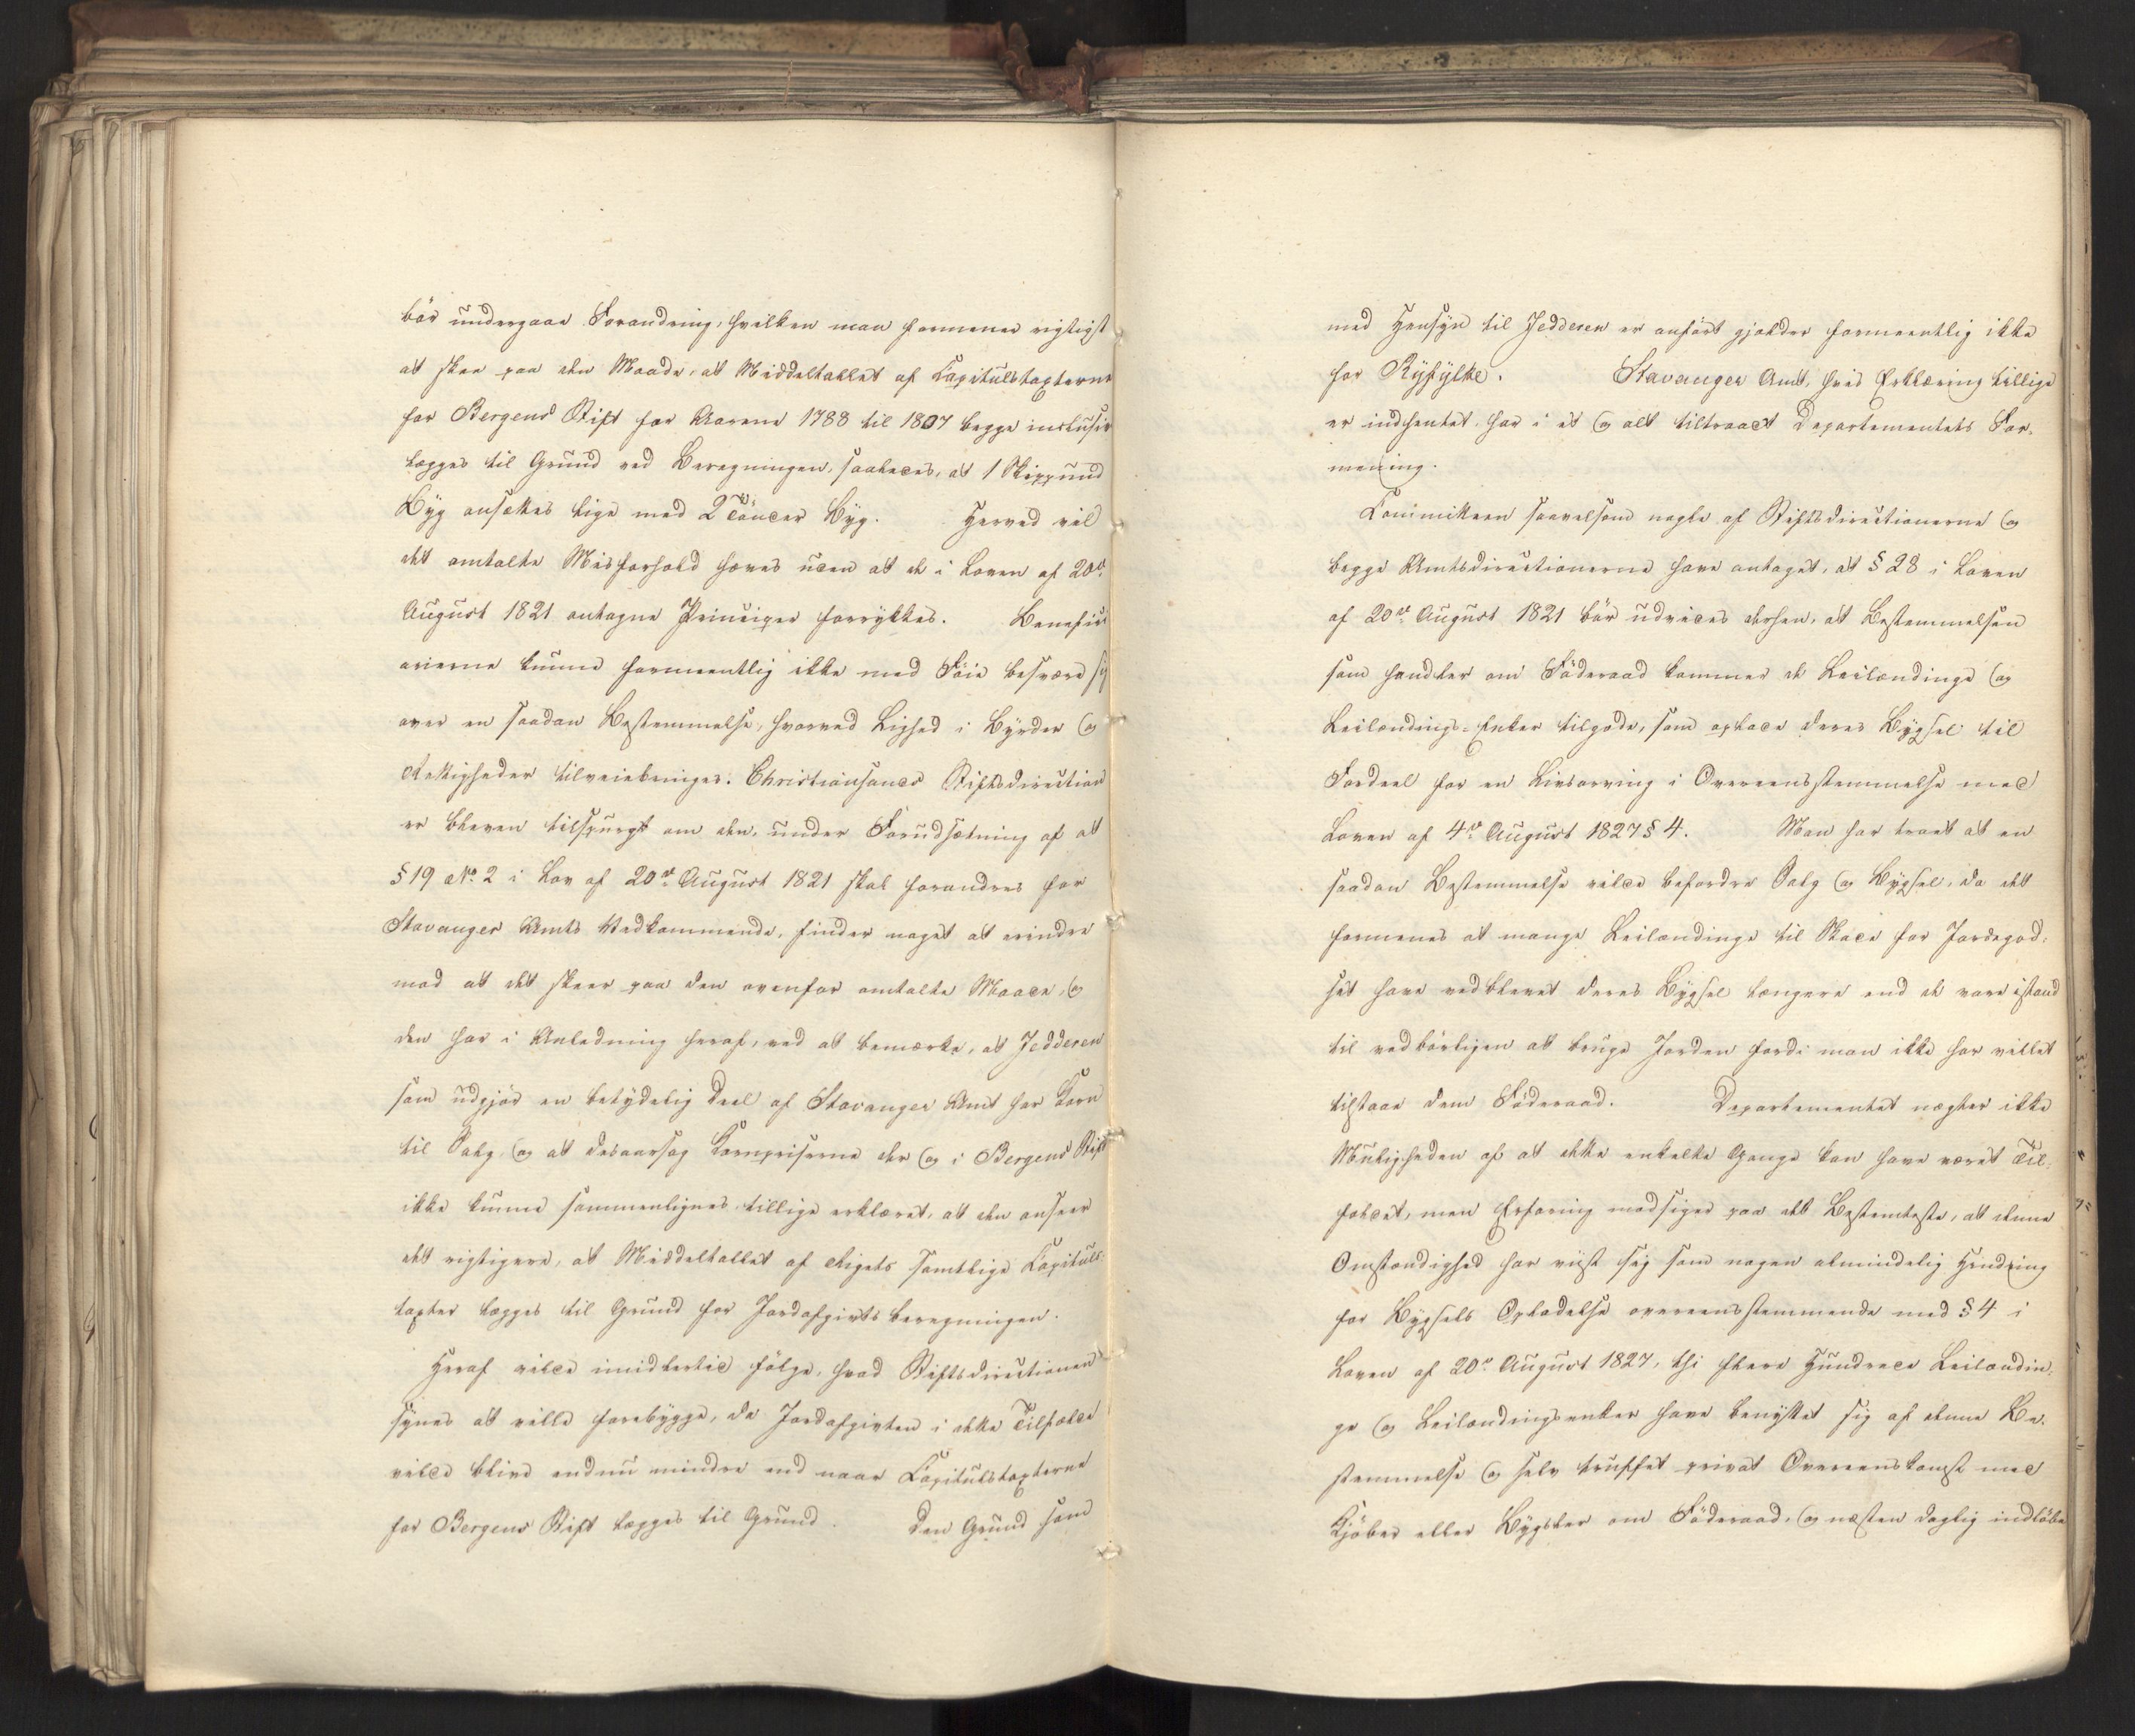 bör undergaae Forandring, hvilken man formener rigtigst
at skee paa den Maade, at Middeltallet af Capitulstaxterne
for Bergens Stift for Aarene 1788 til 1807 begge inclusiv
lægges til Grund ved Beregningen, saaledes, at 1 Skippund
Byg ansættes lige med 2 Tönder Byg. Herved vil
det omtalte Misforhold hæves uden at de i Loven af 20de
August 1821 antagne Principer forrykkes. Benefici
arierne kunne formeentlig ikke med Föie besvære sig
over en saadan Bestemmelse, hvorved Lighed i Byrder og
Rettigheder tilveiebringes. Christiansands Stiftsdirection
er bleven tilspurgt om den, under Forudsætning af at
§ 19 No 2 i Lov af 20de August 1821 skal forandres for
Stavanger Amts Vedkommende, finder noget at erindre
mod at det skeer paa den ovenfor omtalte Maade, og
den har i Anledning heraf, ved at bemærke, at Jedderen
som udgjör en betydelig Deel af Stavanger Amt har Korn
til Salg, og at desaarsag Kornpriserne der og i Bergens Stift
ikke kunne sammenlignes, tillige erklæret, at den anseer
det rigtigere, at Middeltallet af Rigets samtlige Capituls
taxter lægges til Grund for Jordafgivtsberegningen.
Heraf vilde imidlertid fölge, hvad Stiftsdirectionen
synes at ville forebygge, da Jordafgivten i dette Tilfælde
vilde blive endnu mindre end naar Capitulstaxterne
for Bergens Stift lægges til Grund. Den Grund som
med Hensyn til Jedderen er anfört gjælder formeentlig ikke
for Ryfylke. Stavanger Amt, hvis Erklæring tillige
er indhentet, har i et og alt tiltraadt Departementets For-
mening.
Committeen saavelsom nogle af Stiftsdirectionerne og
begge Amtsdirectionerne have antaget, at § 28 i Loven
af 20de August 1821 bör udvides derhen, at Bestemmelsen
som handler om Föderaad kommer de Leilændinge og
Leilændings-Enker tilgode, som oplade deres Bygsel til
Fordeel for en Livsarving i Overeensstemmelse med
Loven af 4de August 1827 § 4. Man har troet at en
saadan Bestemmelse vilde befordre Salg og Bygsel, da det
formenes at mange Leilændinge til Skade for Jordegod-
set have vedblevet deres Bygsel længere end de vare istand
til vedbörligen at bruge Jorden fordi man ikke har villet
tilstaae dem Föderaad. Departementet nægter ikke
Muligheden af at dette enkelte Gange kan have været Til-
fældet, men Erfaring modsiger paa det Bestemteste, at denne
Omstændighed har viist sig som nogen almindelig Hindring
for Bygsels Opladelse overeensstemmende med § 4 i
Loven af 20de August 1827, thi flere Hundrede Leilændin-
ge og Leilændingsenker have benyttet sig af denne Be-
stemmelse og selv truffet privat Overeenskomst med
Kjöber eller Bygsler om Föderaad, og næsten daglig indlöbe